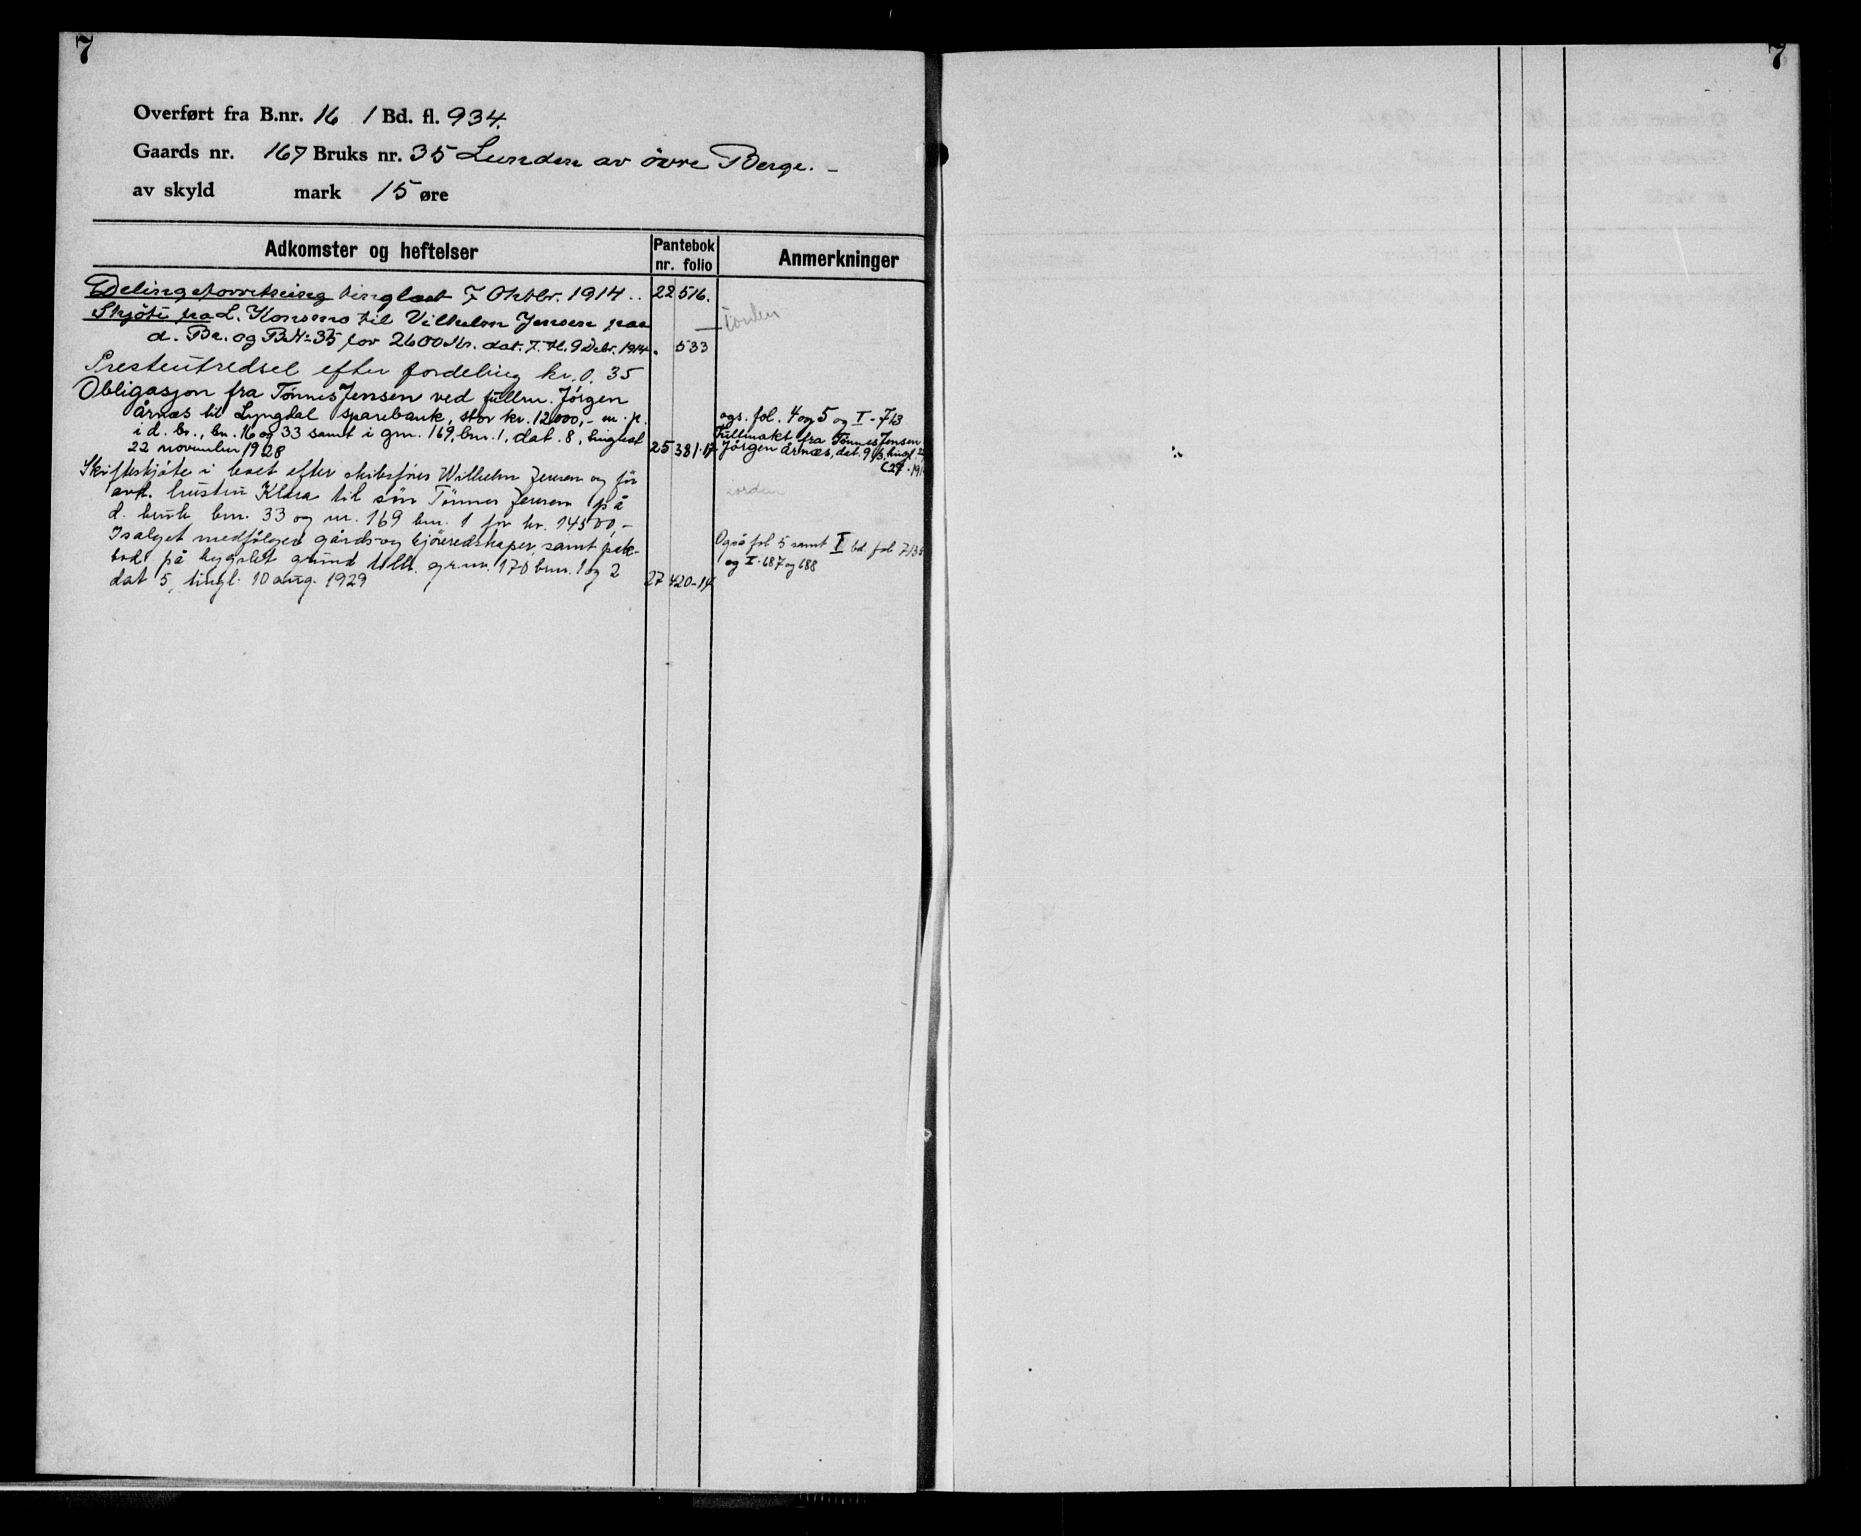 7
7
Overført fra B.nr. 16 1 Bd. fl. 934.
Gaards nr. 167 Bruks nr. 35 Lunden av övre Berge. -
av skyld mark 15 øre
Adkomster og heftelser
Pantebok
nr. folio
Anmerkninger
Delingsforretning tinglæst 7 Oktbr. 1914 .. 22 516.
Skjöte fra L. Konsmo til Vilhelm Jensen paa
d. Br. og BN: 35 for 2600 Kr. dat. 7. tl. 9 Debr. 1914. 533
Presteutredsel efter fordeling kr. 0. 35
Obligasjon fra Tønnes Jensen ved fullm. Jörgen
Årnæs til Lyngdal sparebank, stor kr. 12000,- m. p.
i d. br., bn. 16 og 33 samt i gnr. 169, bnr. 1, dat. 8, tinglest
22 november 1928 25 381-17
ogs. fol. 4 og 5 og I - 713
Fullmakt fra Tönnes Jensen
Jörgen Årnæs, dat. 9/3, tingl.
Skifteskjöte i boet efter skibsförer Wilhelm Jensen og för
avd. hustru Klara til sön Tønnes Jensen på
d. bruk bnr. 33 og nr. 169 bnr. 1 for kr. 14500,-
I salget medfölger gårds- og kjöreredskaper, samt pak-
bod på bygslet grund gr.nr. 170 bnr. 1 og 2
dat 5, tingl. 10 aug. 1929 27 420-14
Også fol 5 samt I bd. fol 713
og I. 687 og 688